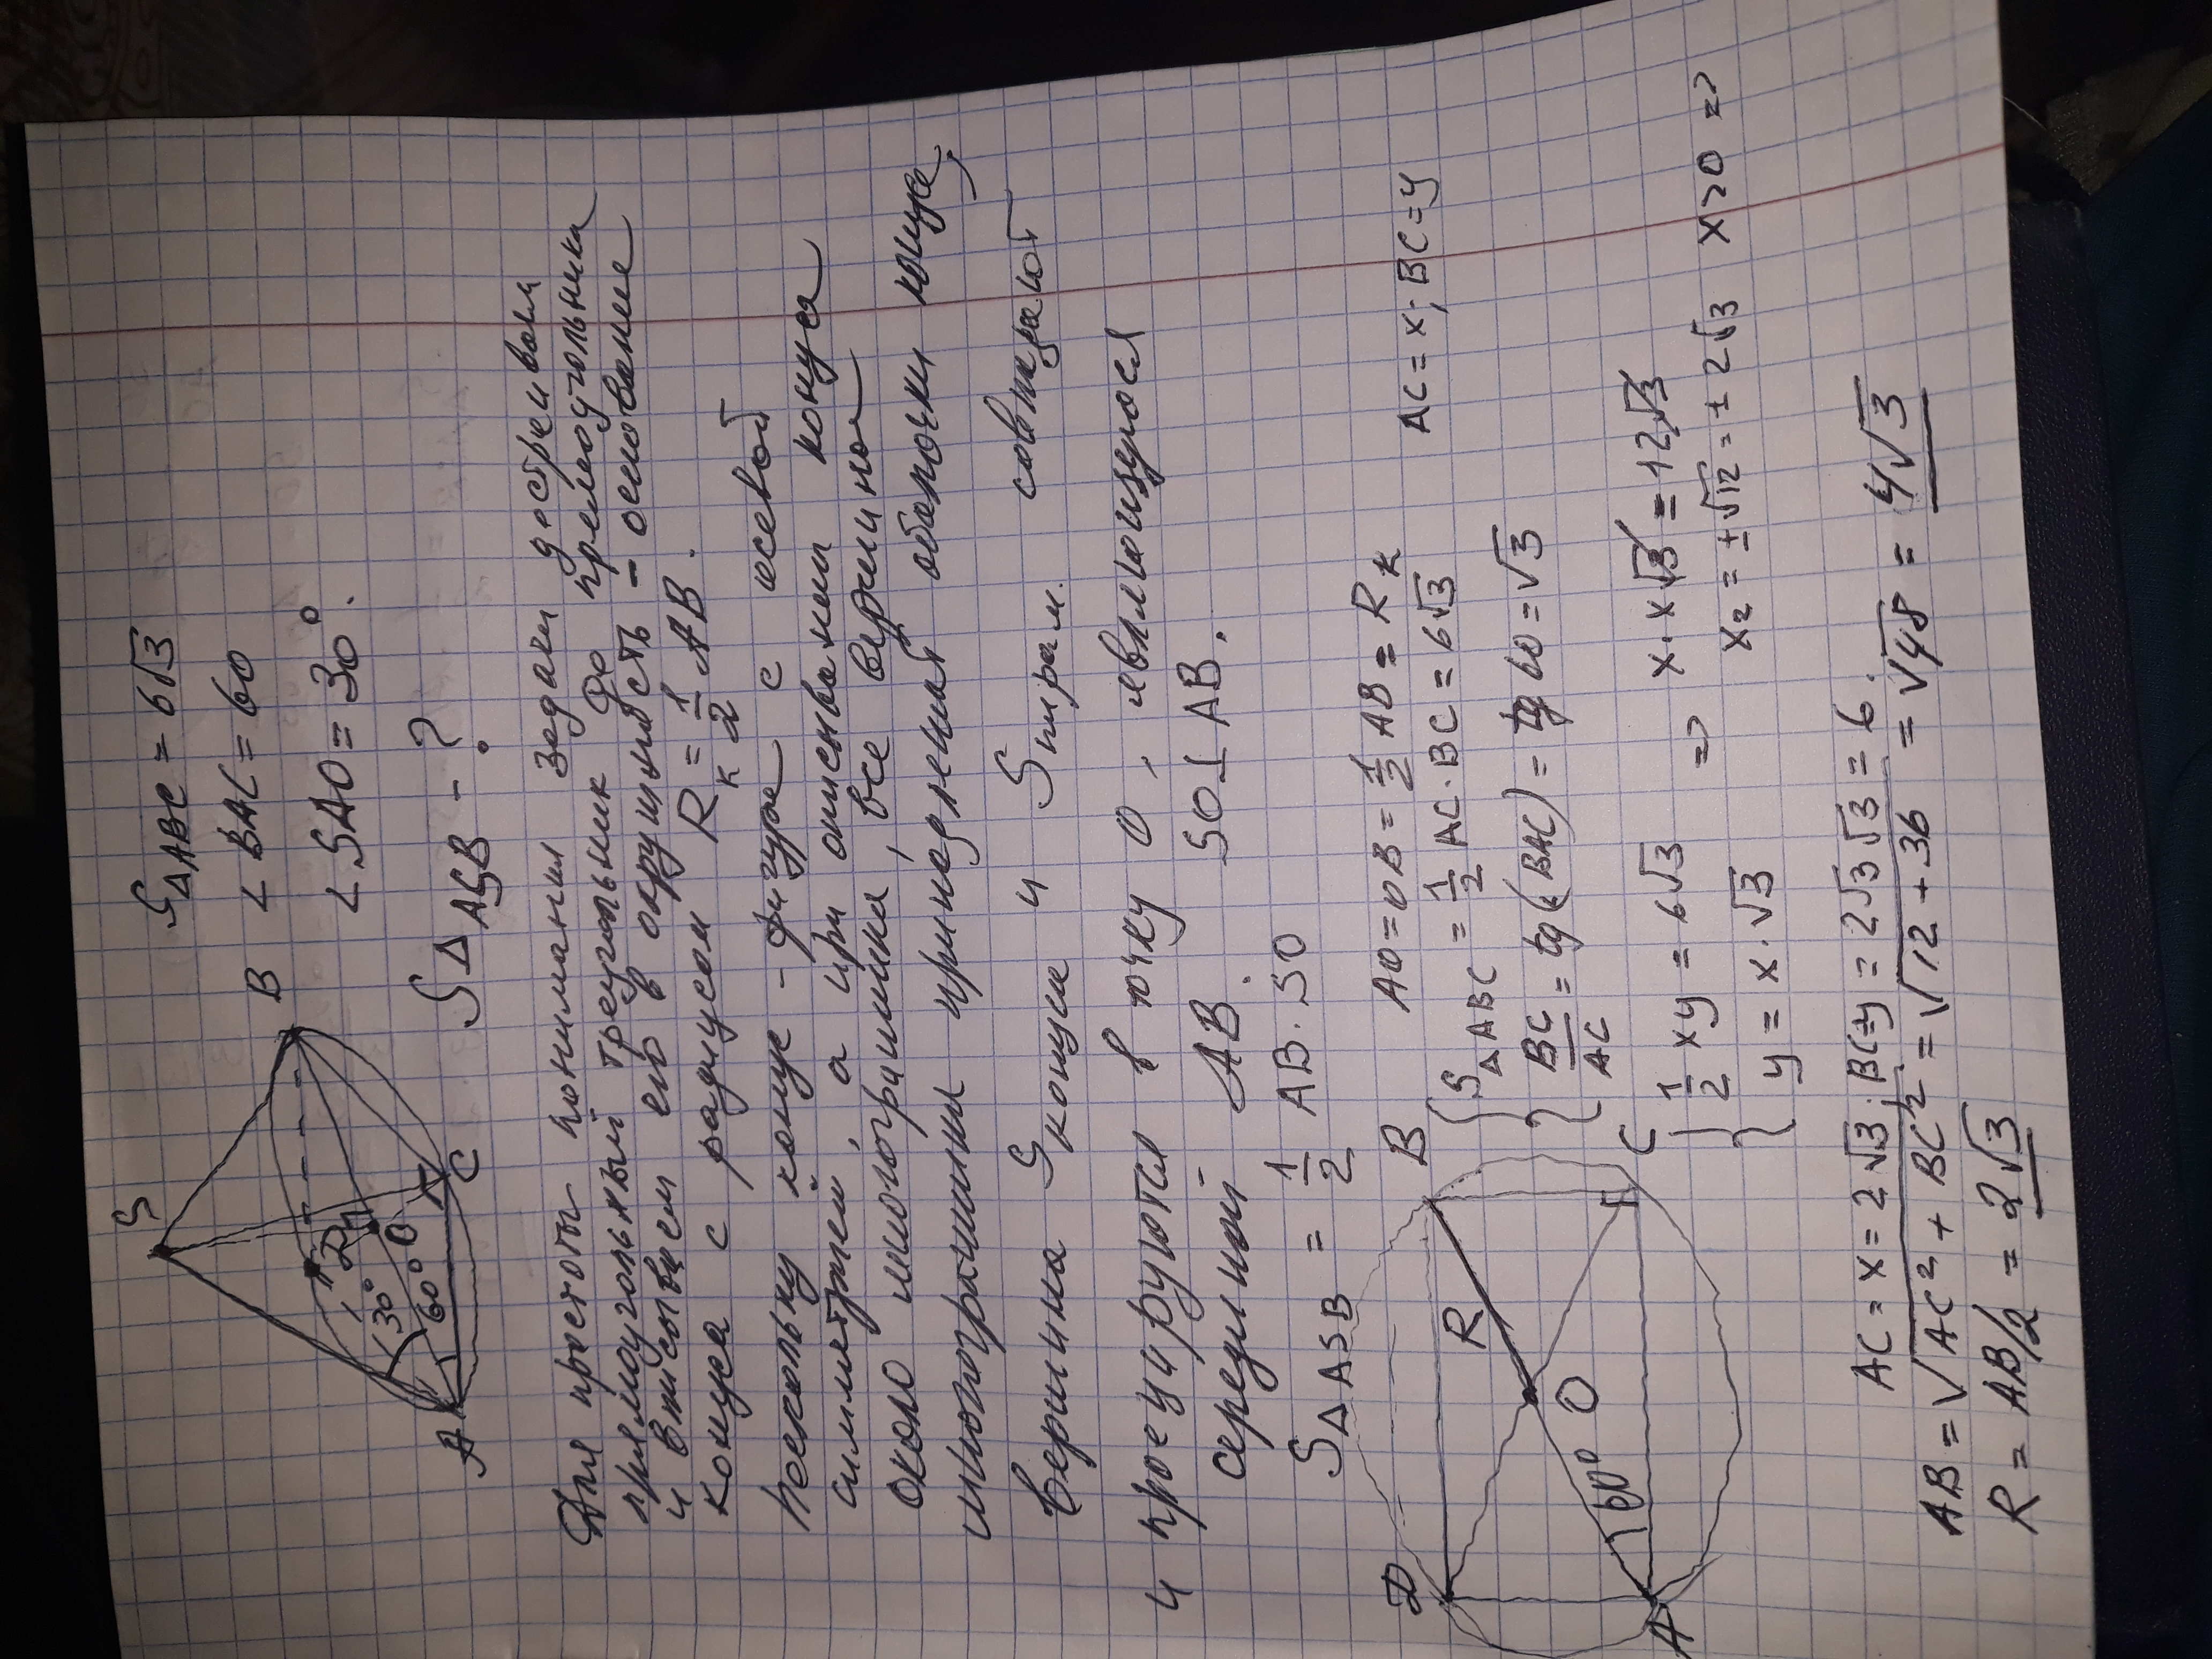 S
B
A
C
D
O
30°
60°
S△ABC = 6√3
∠ BAC = 60
∠ SAO = 30°.
S△ASB - ?
Для простоты понимания задачи достреиваем
прямоугольный треугольник до прямоугольника
и вписывем его в окружность - основание
конуса с радиусом Rк = 1/2 AB.
Поскольку конус - фигуре с осевой
симметрией, а при описывании конуса
около многогранника, все вершиной
многогранника принадлежат оболочки конуса,
вершина Sконуса и Sпирам. совпадают
и проецируются в точку O, являющуюся
серединой AB. SO⊥AB.
S△ASB = 1/2 AB·SO
D
B
R
O
60°
A
C
AO=OB=1/2 AB = Rк
{ S△ABC = 1/2 AC·BC = 6√3 AC=x; BC=y
BC/AC = tg(BAC) = tg 60 = √3
{ 1/2 xy = 6√3 => x·x√3 = 12√3
y = x·√3 x₂ = ±√12 = ±2√3 x>0 =>
AC = x = 2√3; BC=y = 2√3√3 = 6.
AB = √AC²+BC² = √12+36 = √48 = 4√3
R = AB/2 = 2√3